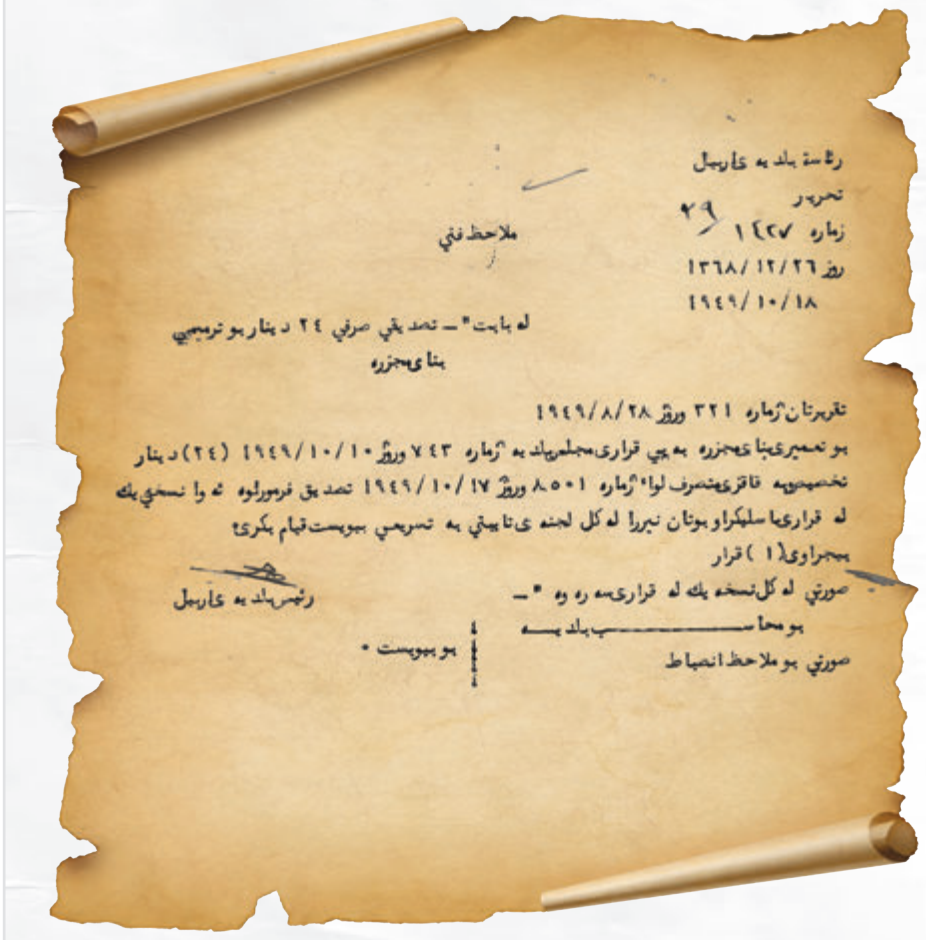 رئاسة بلد يه ى اربيل
تحرير
ژماره ١٤٢٧ ٢٩
روژ ١٣٦٨/١٢/٢٦
١٩٤٩/١٠/١٨
ملاحظ فني
له بابت" ــ تصديقي صرفي ٢٤ دينار بو ترميمي
بناى مجزره
تقريرتان ژماره ٣٢١ وروژ ١٩٤٩/٨/٢٨
بو تعميرى بناى مجزره به پي قرارى مجلس بلد يه ژماره ٧٤٣ وروژ ١٩٤٩/١٠/١٠ (٢٤) دينار
تخصيص وبه قاقزى متصرف لواء ژماره ٨٥٠١ وروژ ١٩٤٩/١٠/١٧ تصديق فرمورلوه ئه وا نسخي يك
له قرارى باسليكراو بوتان نيررا له كل لجنه ى تايبتي به تسريعي بيويست قيام بكرى
بيجراوى (١) قرار
صورتي له كل نسخه يك له قرارى سه ره وه "ــ
رئيس بلد يه ى اربيل
بو محاســــــب بلديــــه
بو بيويست ٠
صورتي بو ملاحظ انضباط